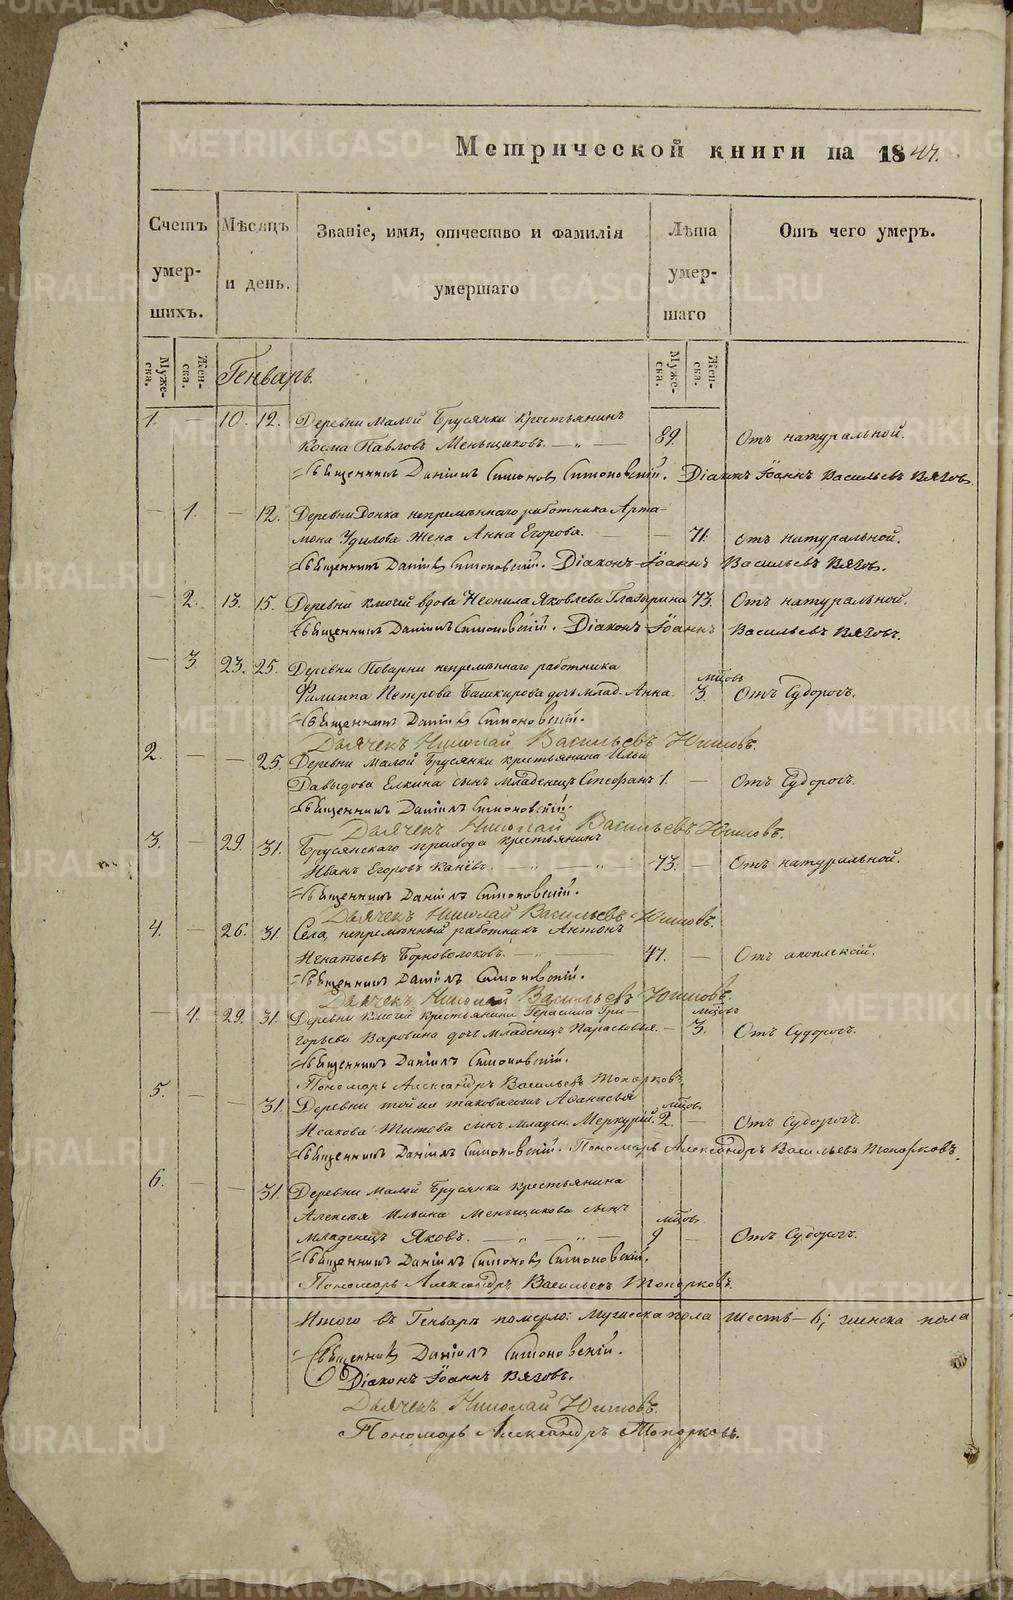 Метрической книги на 1847.
Счетъ умер-шихъ.
Мѣсяцъ и день.
Званіе, имя, отчество и фамилія умершаго
Лѣта умер-шаго
Отъ чего умеръ.
Муже-ска.
Жен-ска.
Муже-ска.
Жен-ска.
Генварь.
1. — 10. 12. Деревни Малой Брусянки крестьянинъ
Косма Павловъ Меньщиковъ. — „ — 89. Отъ натуральной.
Священникъ Даніилъ Симоновъ Симоновскій. Діаконъ Іоаннъ Васильевъ Вяговъ.
— 1. — 12. Деревни непремѣннаго работника Арта-
мона Удилова жена Анна Егорова. — — 71. отъ натуральной.
Священникъ Даніилъ Симоновскій. Діаконъ Іоаннъ Васильевъ Вяговъ.
— 2. 13. 15. Деревни Ключей вдова Неонила Яковлева Глазырина 73. Отъ натуральной.
Священникъ Даніилъ Симоновскій. Діаконъ Іоаннъ Васильевъ Вяговъ.
— 3. 23. 25. Деревни Поварни непремѣннаго работника
Филиппа Петрова Башкирова дочь млад. Анна. мцовъ 3. Отъ Судорогъ.
Священникъ Даніилъ Симоновскій.
Дьячекъ Николай Васильевъ Юшковъ.
2. — — 25. Деревни Малой Брусянки крестьянина Ильи
Давыдова Елкина сынъ младенецъ Стефанъ 1. — Отъ Судорогъ.
Священникъ Даніилъ Симоновскій.
Дьячекъ Николай Васильевъ Юшковъ.
3. — 29. 31. Брусянскаго прихода крестьянинъ
Иванъ Егоровъ Канёвъ. — „ — „ — 73. — Отъ натуральной.
Священникъ Даніилъ Симоновскій.
Дьячекъ Николай Васильевъ Юшковъ.
4. — 26. 31. Села, непремѣнный работникъ Антонъ
Игнатьевъ Черноволоковъ. — „ — 47. — Отъ апоплексій.
Священникъ Даніилъ Симоновскій.
Дьячекъ Николай Васильевъ Юшковъ.
— 4. 29. 31. Деревни Ключей крестьянина Герасима Гри-
горьева Варовина дочь младенецъ Парасковья. — мцовъ 3. Отъ Судорогъ.
Священникъ Даніилъ Симоновскій.
Пономарь Александръ Васильевъ Топорковъ.
5. — — 31. Деревни той же таковагожъ Афанасья
Исакова Титова сынъ младен. Меркурій. мцовъ 2. — Отъ Судорогъ.
Священникъ Даніилъ Симоновскій. Пономарь Александръ Васильевъ Топорковъ.
6. — — 31. Деревни Малой Брусянки крестьянина
Алексѣя Ильина Меньщикова сынъ
младенецъ Яковъ. — „ — „ — мцовъ 9 — Отъ Судорогъ.
Священникъ Даніилъ Симоновъ Симоновскій.
Пономарь Александръ Васильевъ Топорковъ.
Итого въ Генварѣ померло: Мужеска пола шесть — 6; женска пола
Священникъ Даніилъ Симоновскій.
Діаконъ Іоаннъ Вяговъ.
Дьячекъ Николай Юшковъ.
Пономарь Александръ Топорковъ.
METRIKI.GASO-URAL.RU